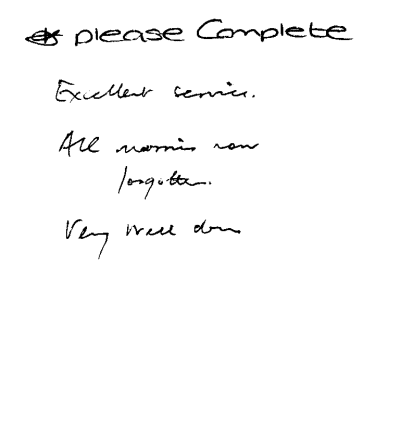 * please Complete
Excellent service.
All worries now
forgotten.
Very well done